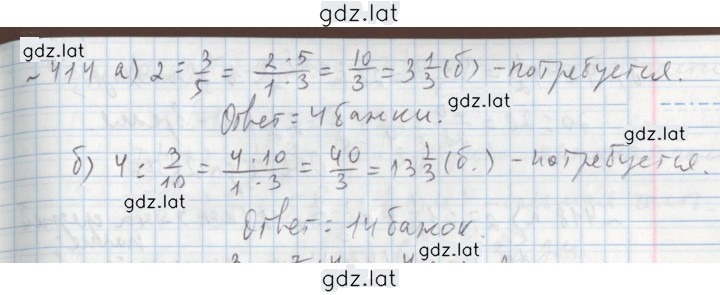 gdz.lat
gdz.lat
№414 а) 2 : 3/5 = 2·5/1·3 = 10/3 = 3 1/3 (б) - потребуется.
gdz.lat
Ответ: 4 банки.
gdz.lat
б) 4 : 3/10 = 4·10/1·3 = 40/3 = 13 1/3 (б.) - потребуется.
gdz.lat
Ответ: 14 банок.
gdz.lat
gdz.lat